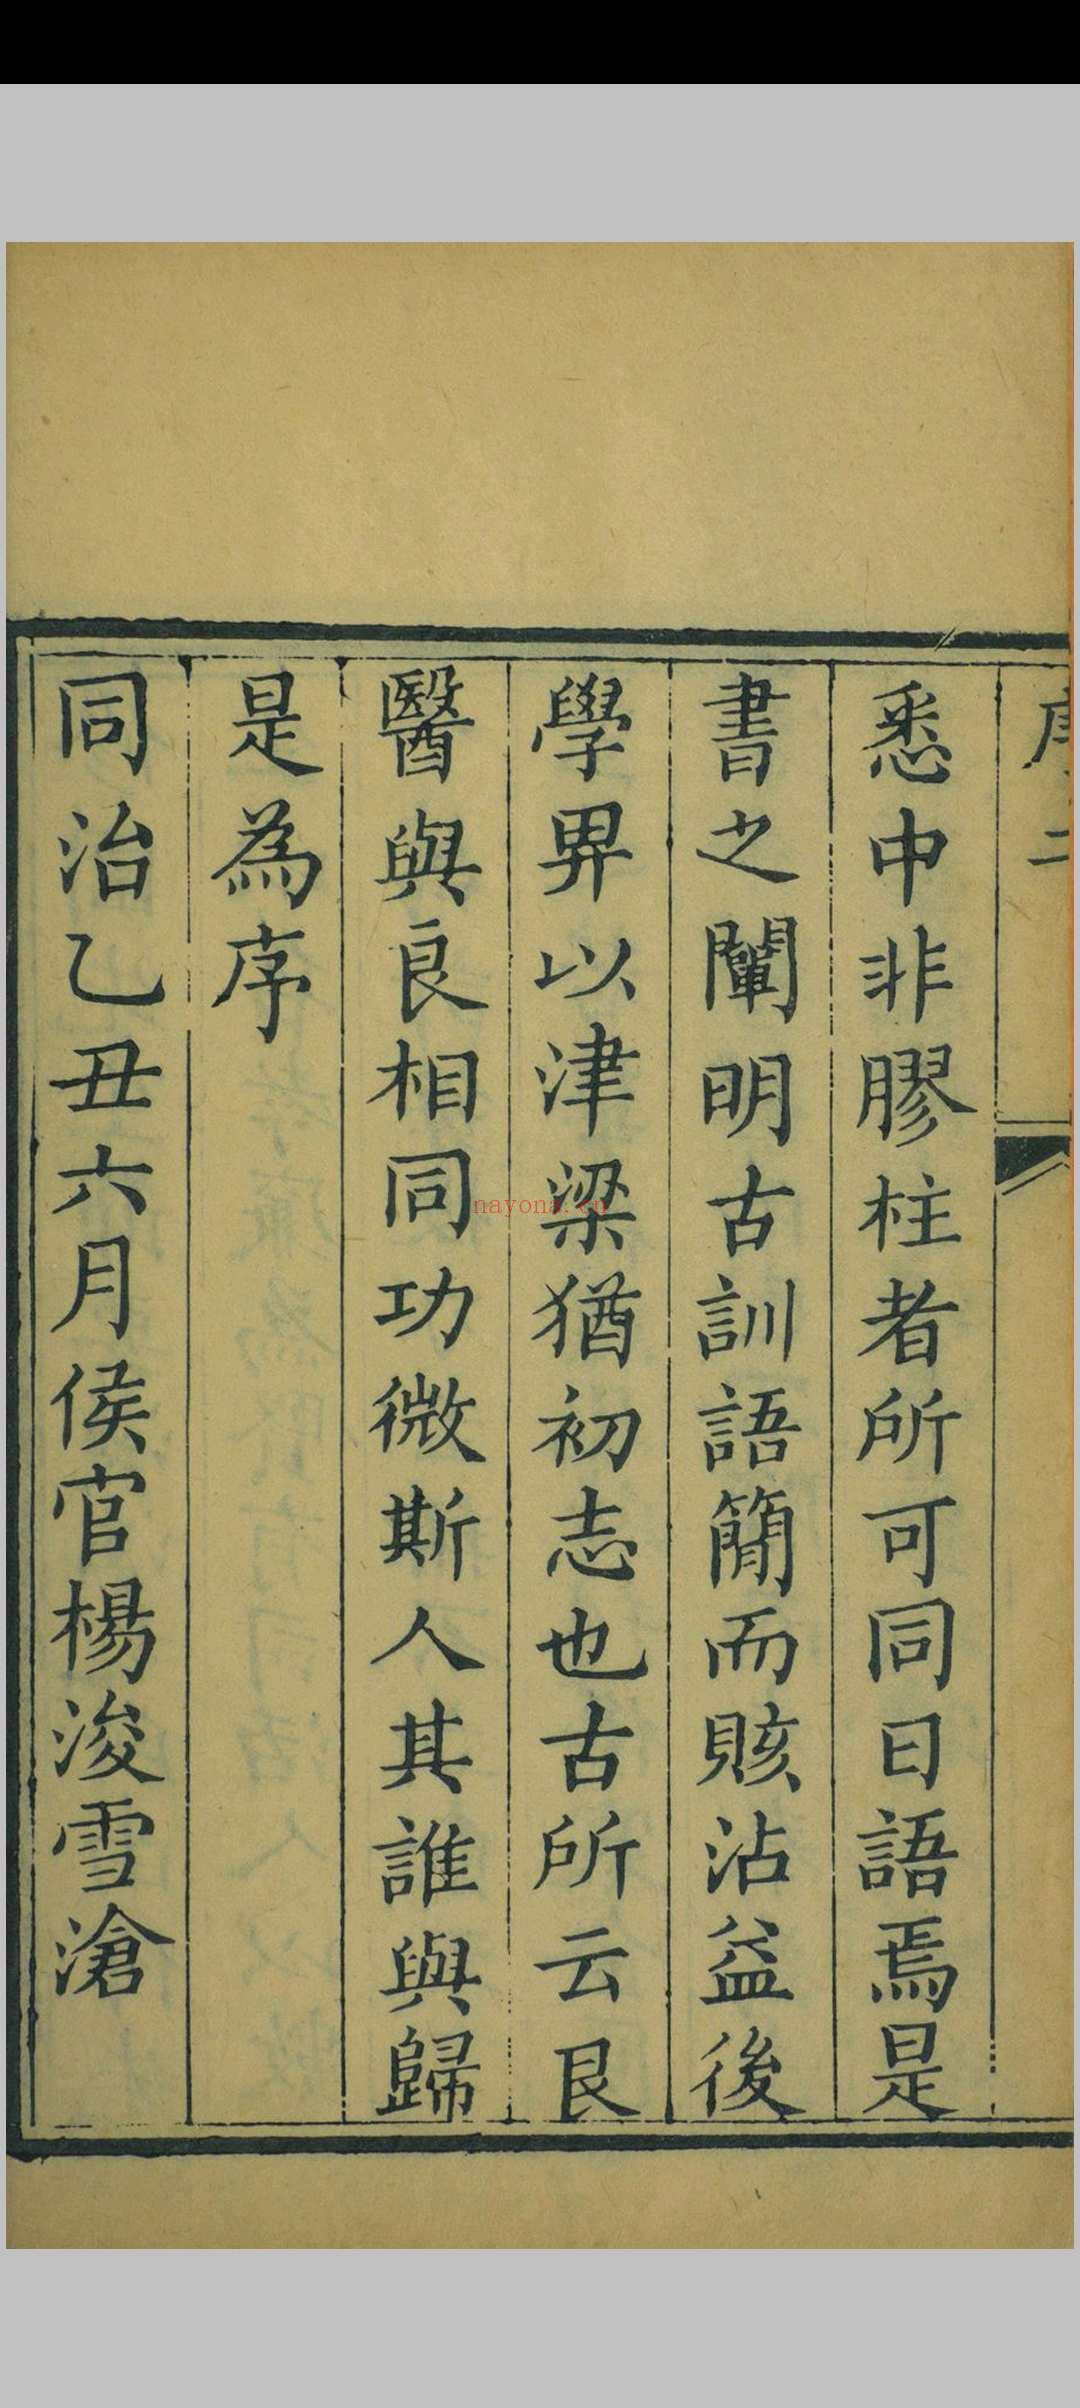 序 二
悉中非膠柱者所可同日語焉是
書之闡明古訓語簡而賅沾益後
學畀以津梁猶初志也古所云良
醫與良相同功微斯人其誰與歸
是為序
同治乙丑六月侯官楊浚雪滄
nayona.cn